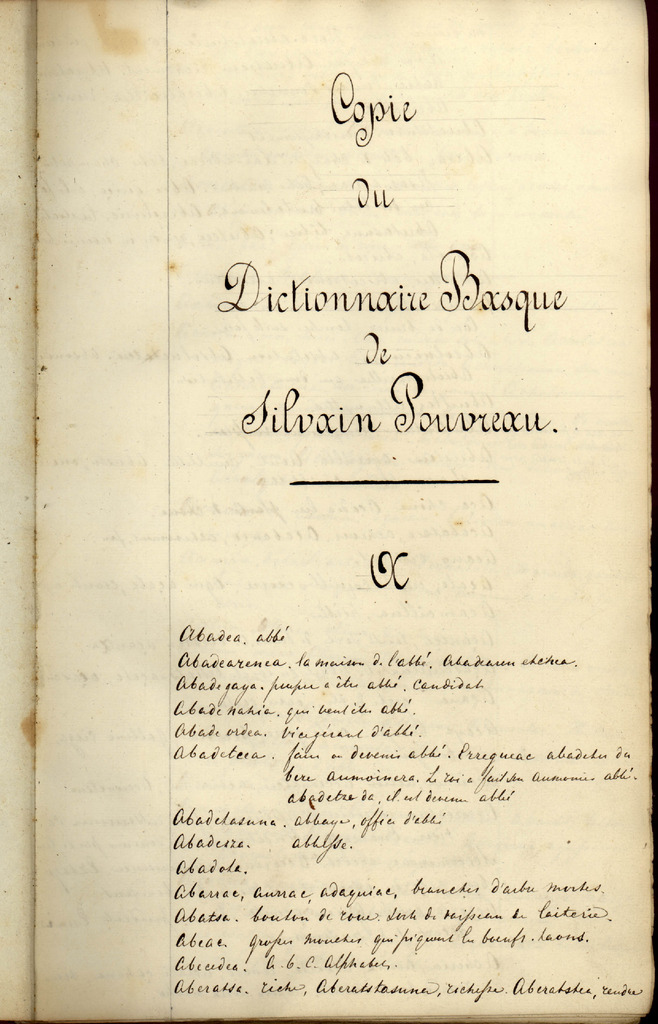 Copie
du
Dictionnaire Basque
de
Silvain Pouvreau.
A
Abadea. abbé
Abadearenea. la maison de l'abbé. Abadearen etchea.
Abadegaya. propre a être abbé. Candidat
Abade nahia. qui veut être abbé.
Abade ordea. vicegérant d'abbé.
Abadetcea. faire ou devenir abbé. Erregueac abadetu du
bere aumoinera. Le roi a fait son aumonier abbé.
abadetze da, il est devenu abbé
Abadetasuna. abbaye, office d'abbé
Abadesza. abbesse.
Abadota.
Abarrac, aurrac, adaquiac, branches d'arbre mortes.
Abatsa. bouton de roue. Sorte de vaisseau de laiterie.
Abeac. grosses mouches qui piquent les boeufs. taons.
Abecedea. A. b. C. Alphabet.
Aberatsa. riche, Aberatstasuna, richesse. Aberatstea, rendre